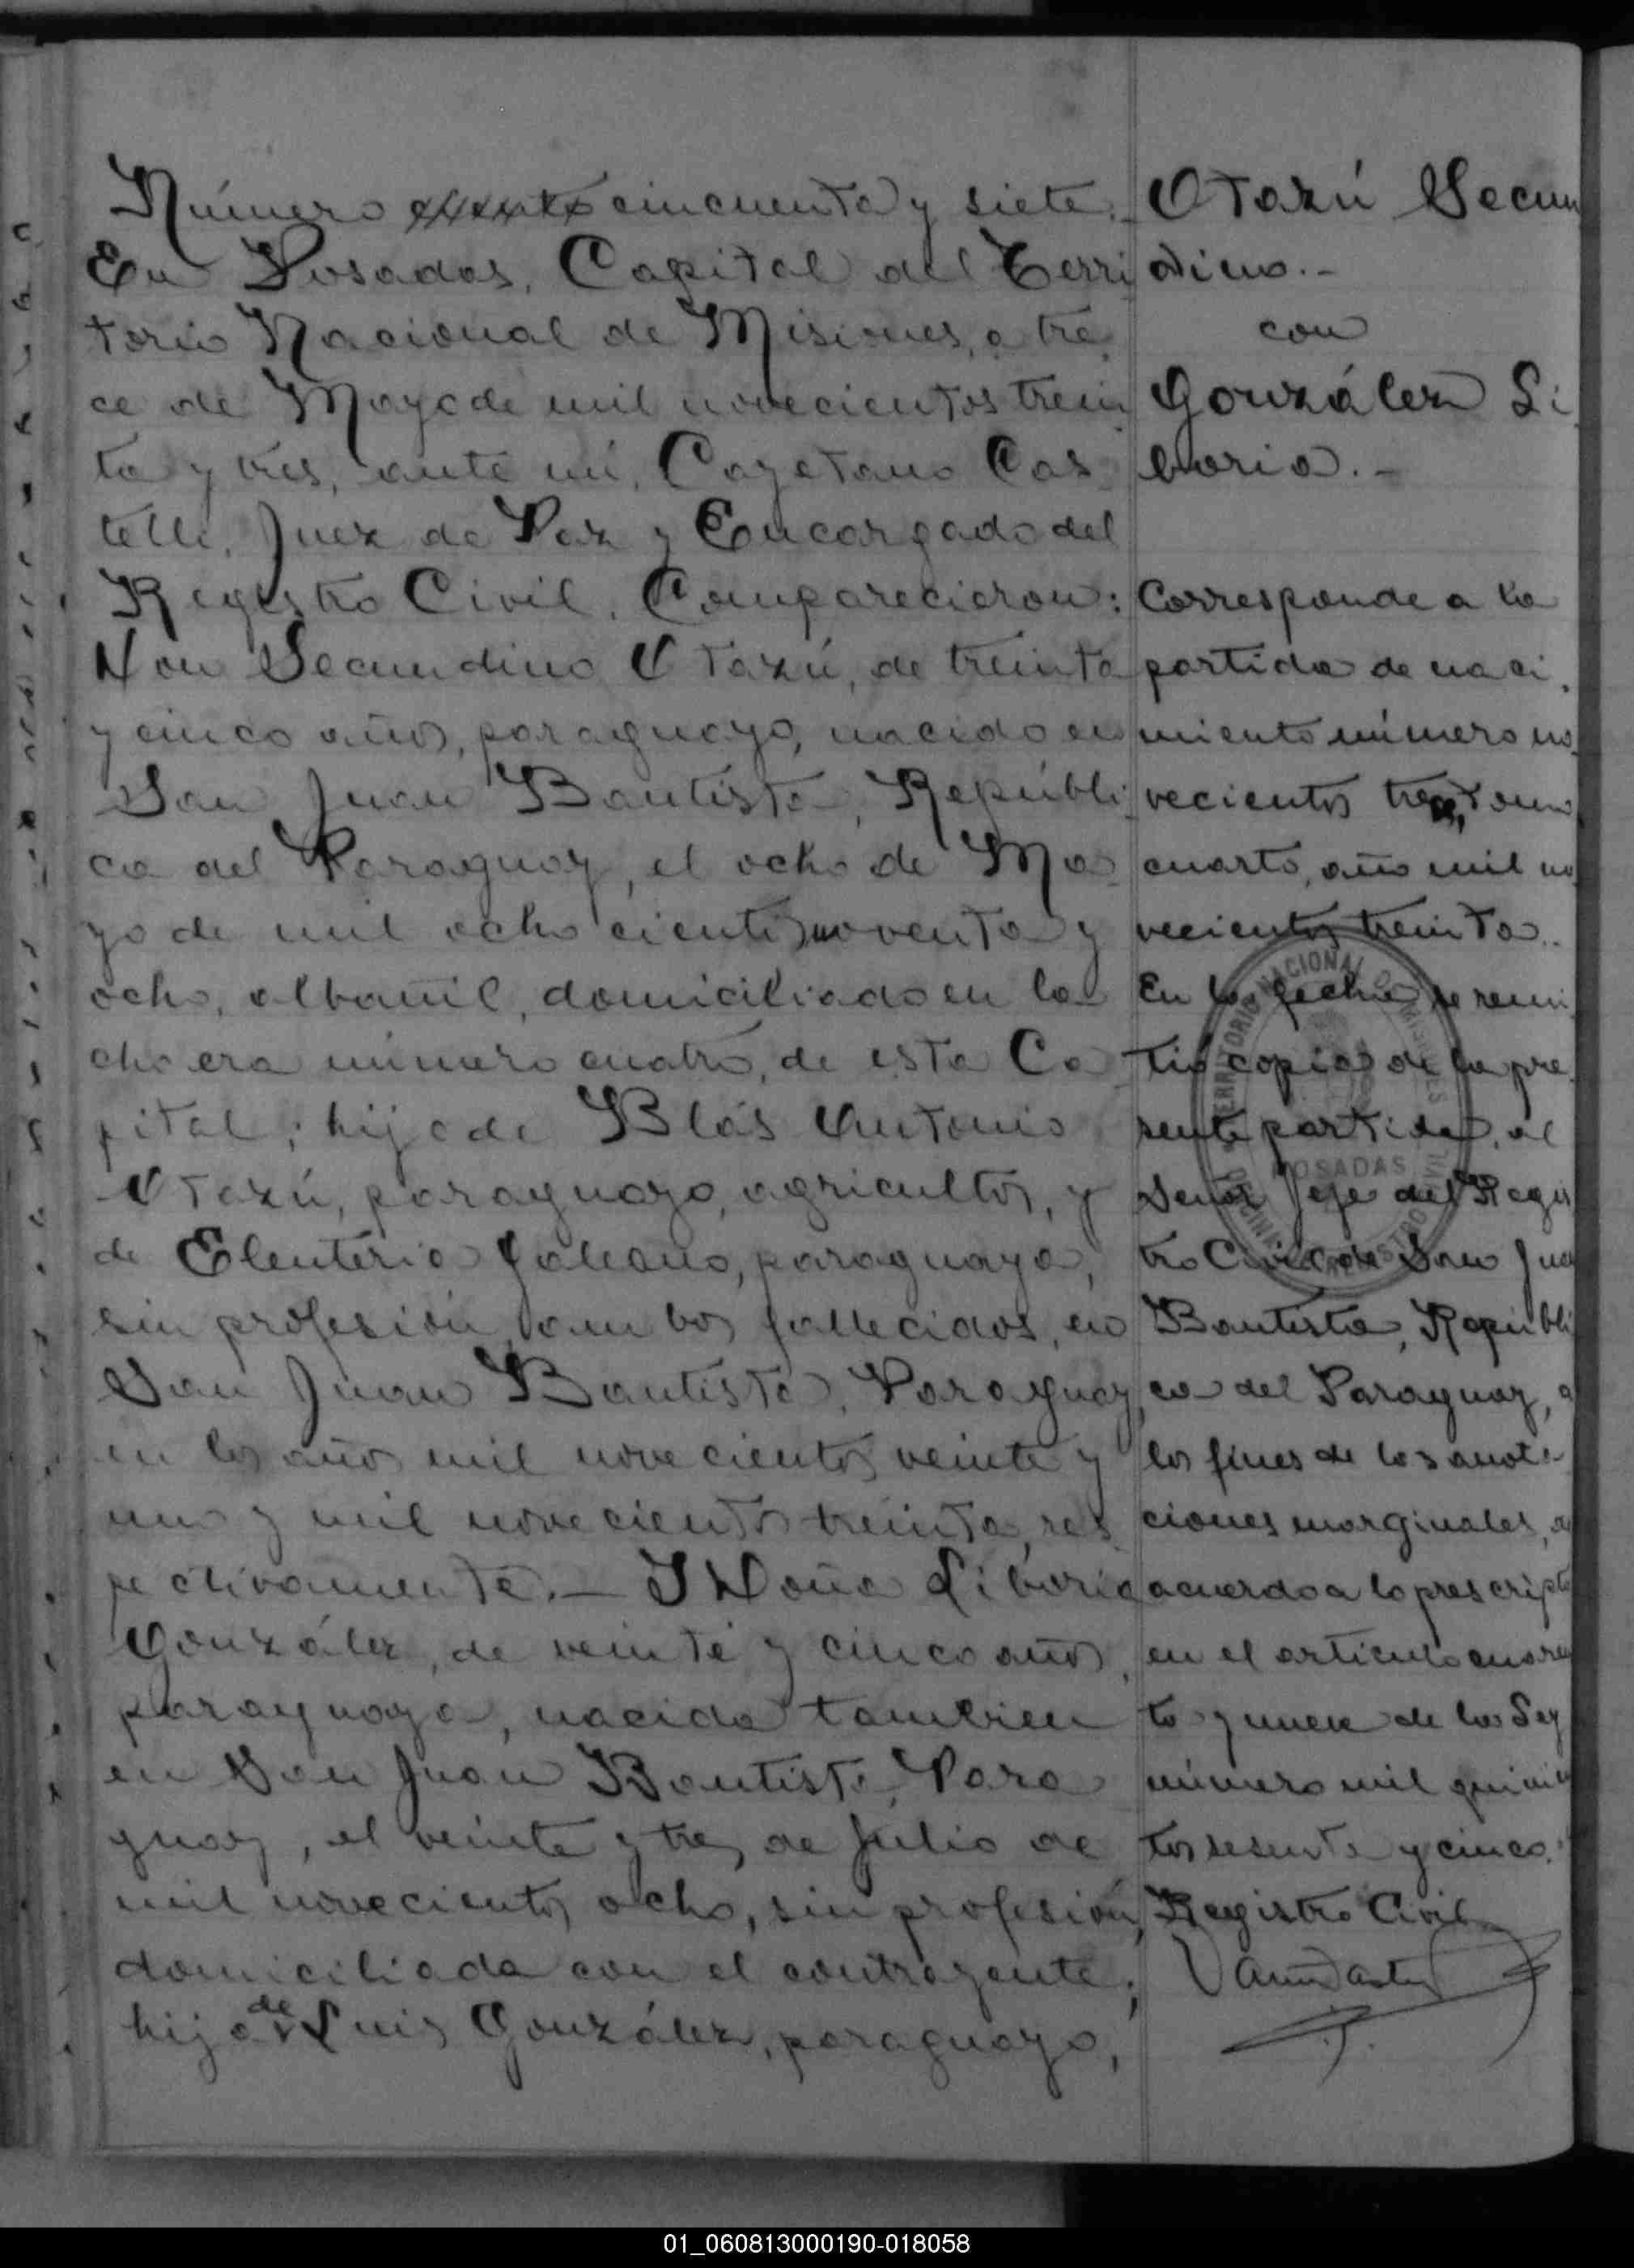 Número cincuenta y siete.
En Posadas, Capital del Terri
torio Nacional de Misiones, a tre
ce de Mayo de mil novecientos trein
ta y tres, ante mí, Cayetano Cas
telli, Juez de Paz y Encargado del
Registro Civil, Comparecieron:
Don Secundino Otazú, de treinta
y cinco años, paraguayo, nacido en
San Juan Bautista, Repúbli
ca del Paraguay, el ocho de Ma
yo de mil ocho cientos noventa y
ocho, albañil, domiciliado en la
chacra número cuatro, de esta Ca
pital; hijo de Blás Antonio
Otazú, paraguayo, agricultor, y
de Eleuteria Galeano, paraguaya,
sin profesión, ambos fallecidos, en
San Juan Bautista, Paraguay,
en los años mil novecientos veinte y
uno y mil novecientos treinta, res
pectivamente.— Y Doña Liboria
González, de veinte y cinco años,
paraguaya, nacida tambien
en San Juan Bautista, Para
guay, el veinte y tres de Julio de
mil novecientos ocho, sin profesión,
domiciliada con el contrayente;
hija de Luis González, paraguayo,
Otazú Secun
dino.-
con
González Li
boria.-
Corresponde a la
partida de naci
miento número no
vecientos tomo
cuarto, año mil no
vecientos treinta.
En la fecha se remi
tió copia de la pre
sente partida, al
Señor Jefe del Regis
tro Civil de San Juan
Bautista, Repúbli
ca del Paraguay, a
los fines de las anota
ciones marginales, de
acuerdo a lo prescripto
en el artículo cuaren
ta y nueve de la Ley
número mil quinien
tos sesenta y cinco.
Registro Civil
TERRITORIO NACIONAL DE MISIONES
POSADAS
OFICINA REGISTRO CIVIL
01_060813000190-018058